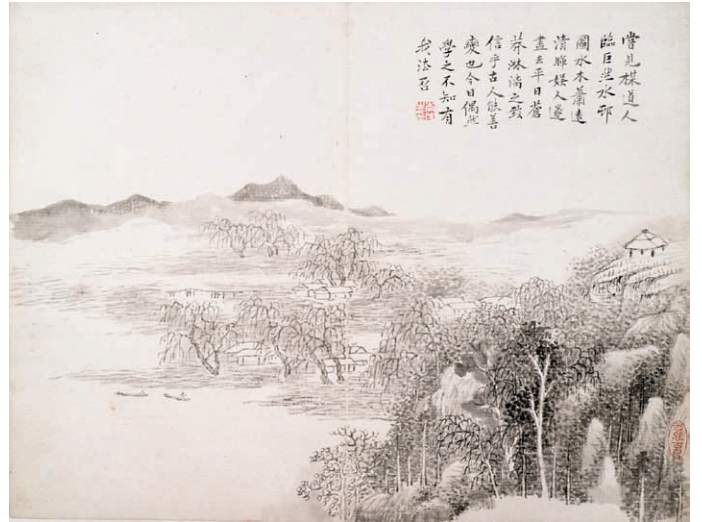 嘗見楳道人
臨巨然水邨
圖水木蕭遠
清暉娱人遂
盡去平日蒼
莽淋漓之致
信乎古人能善
變也今日偶然
學之不知有
我法否